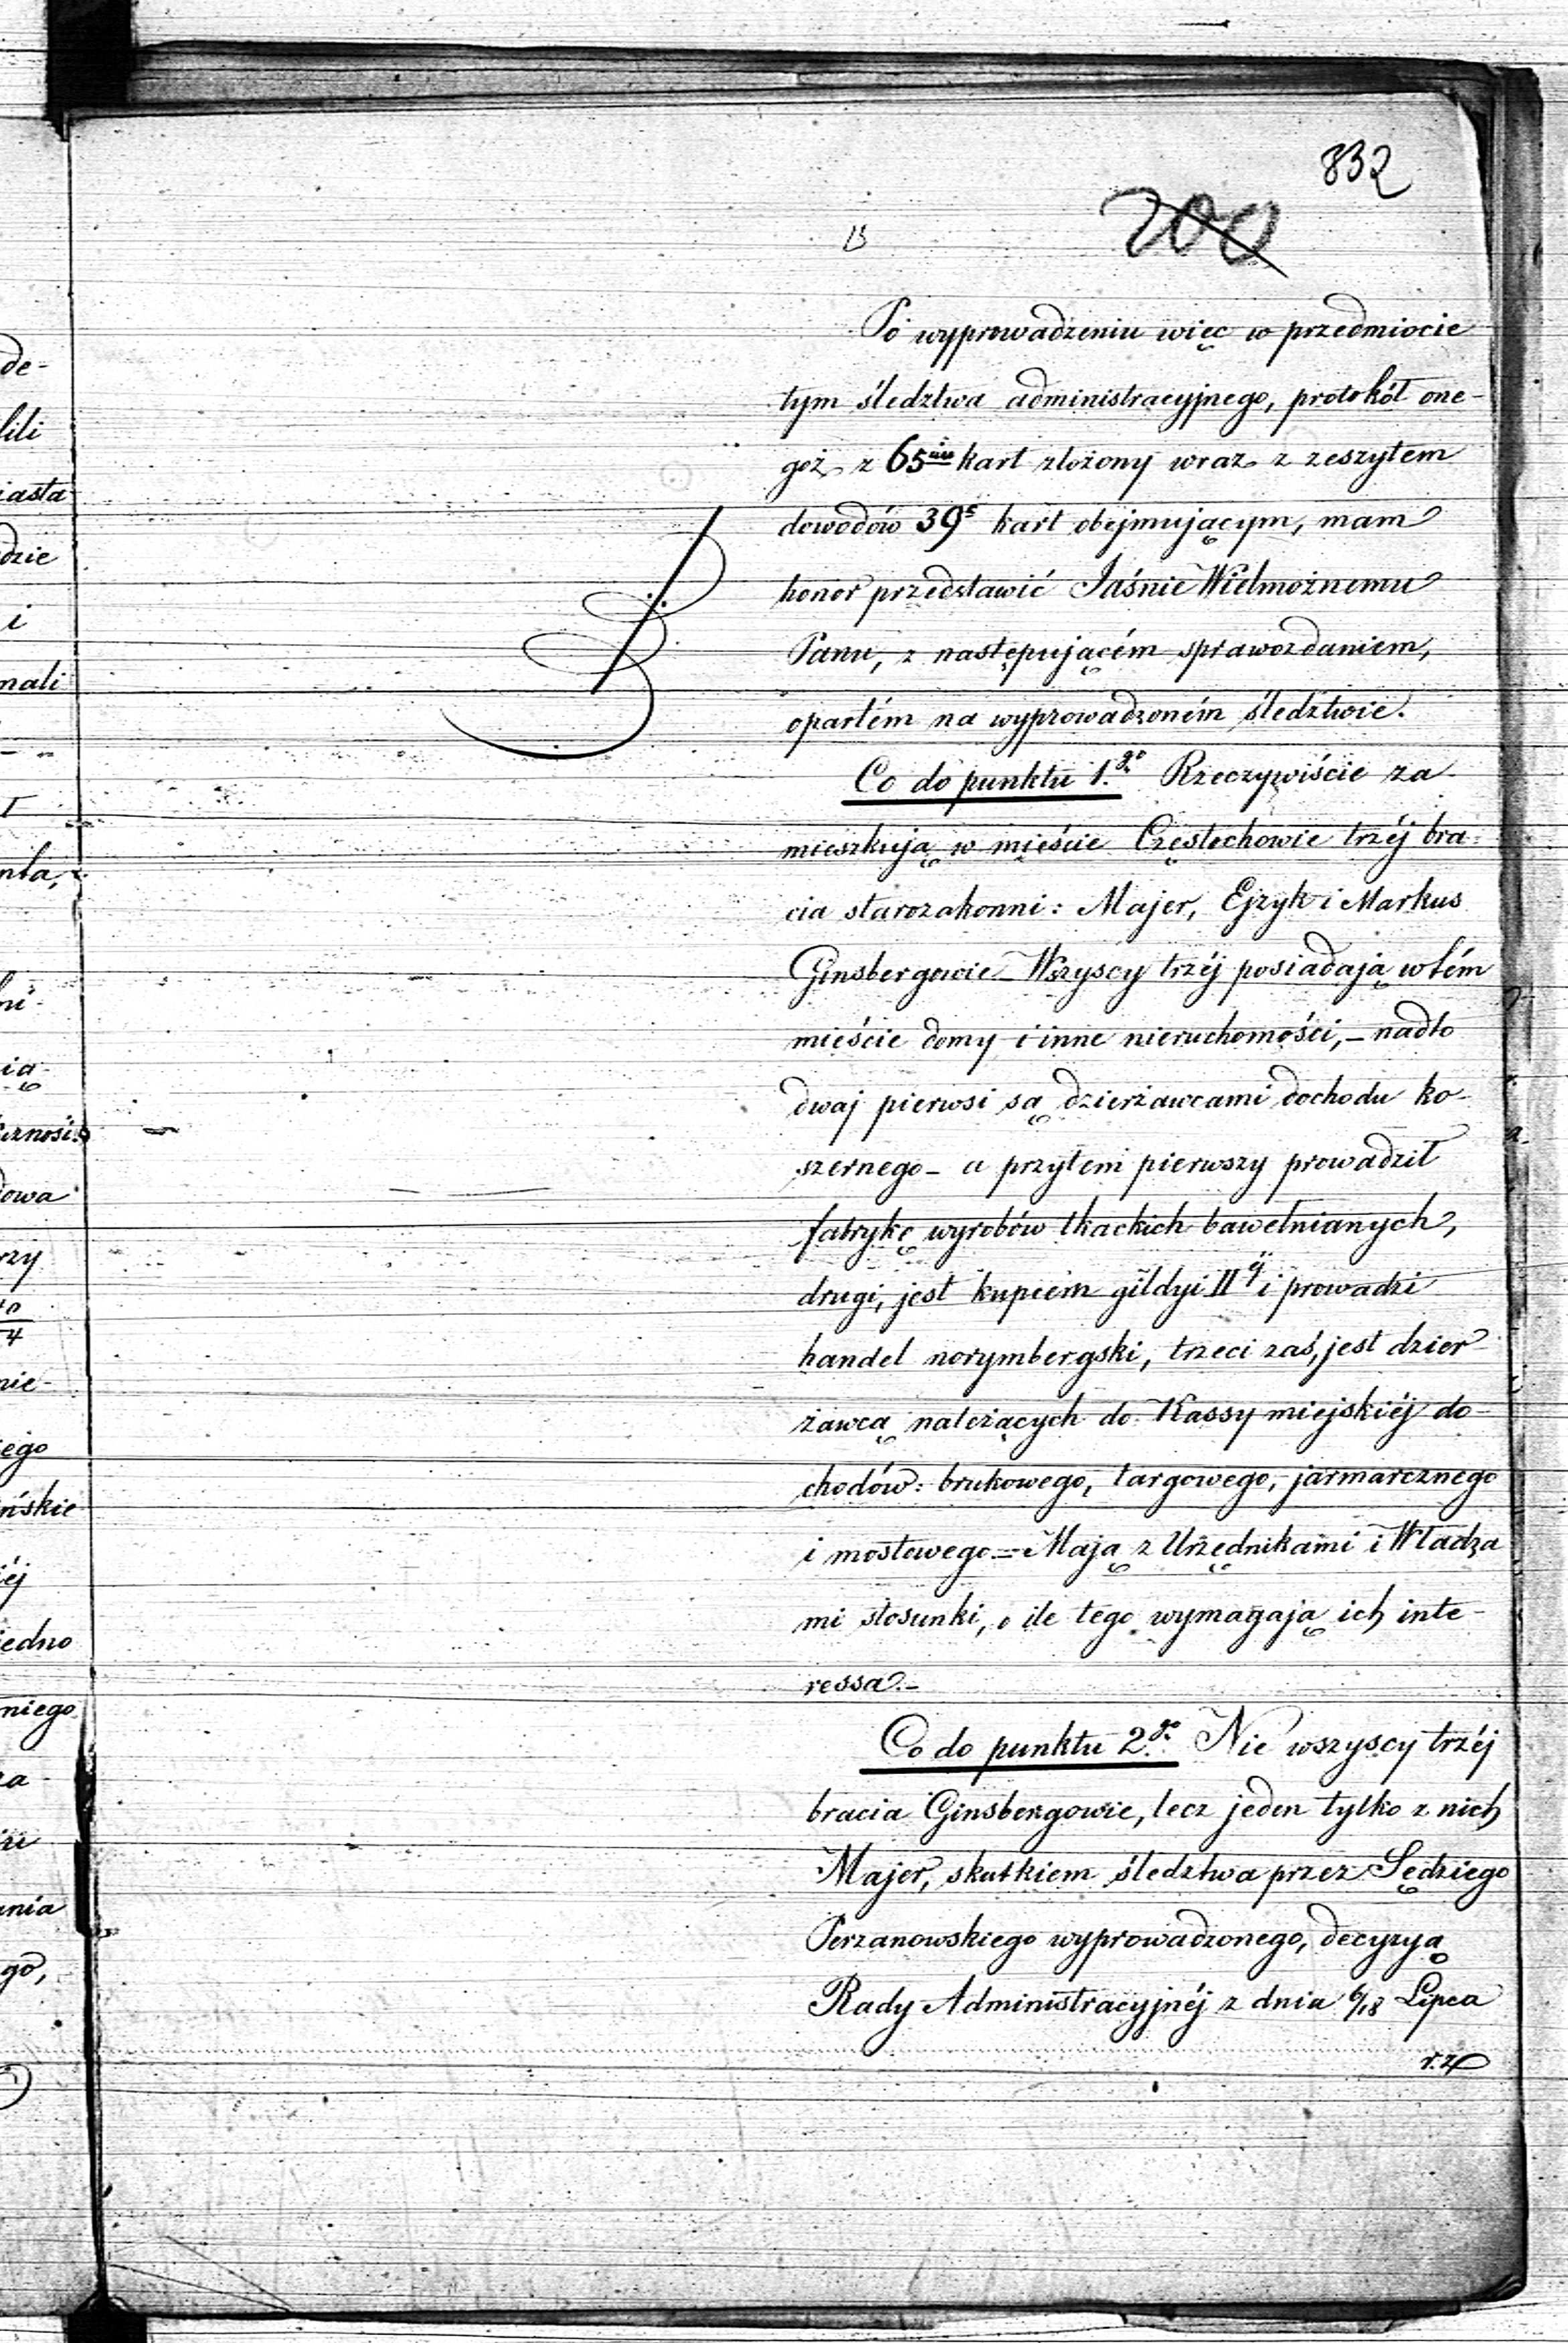 832
200
15
Po wyprowadzeniu więc w przedmiocie
tym śledztwa administracyjnego, protokół one-
goż z 65ciu kart złożony wraz z zeszytem
dowodów 39 kart obejmującym, mam
honor przedstawić Jaśnie Wielmożnemu
Panu, z następującém sprawozdaniem,
opartém na wyprowadzoném śledztwie.
Co do punktu 1.go Rzeczywiście za-
mieszkują w mieście Częstochowie trzéj bra-
cia starozakonni: Majer, Ejzyk i Markus
Ginsbergowie – Wszyscy trzéj posiadają w tém
mieście domy i inne nieruchomości, – nadto
dwaj pierwsi są dzierżawcami dochodu ko-
szernego – a przytem pierwszy prowadził
fabrykę wyrobów tkackich bawełnianych,
drugi, jest kupcem gildyi IIéj i prowadzi
handel norymbergski, trzeci zaś, jest dzier-
żawcą należących do Kassy miejskiéj do-
chodów: brukowego, targowego, jarmarcznego
i mostowego = Mają z Urzędnikami i Władza
mi stosunki, o ile tego wymagają ich inte-
ressa. –
Co do punktu 2.go Nie wszyscy trzéj
bracia Ginsbergowie, lecz jeden tylko z nich
Majer, skutkiem śledztwa przez Sędziego
Perzanowskiego wyprowadzonego, decyzyą
Rady Administracyjnéj z dnia 6/18 Lipca
r. z.
de-
lili
iasta
dzie
i
mali
nta,
ni-
ią-
dowa
rzy
4
nie-
iego
ńskie
éj
jedno
niego
za
ania
go,